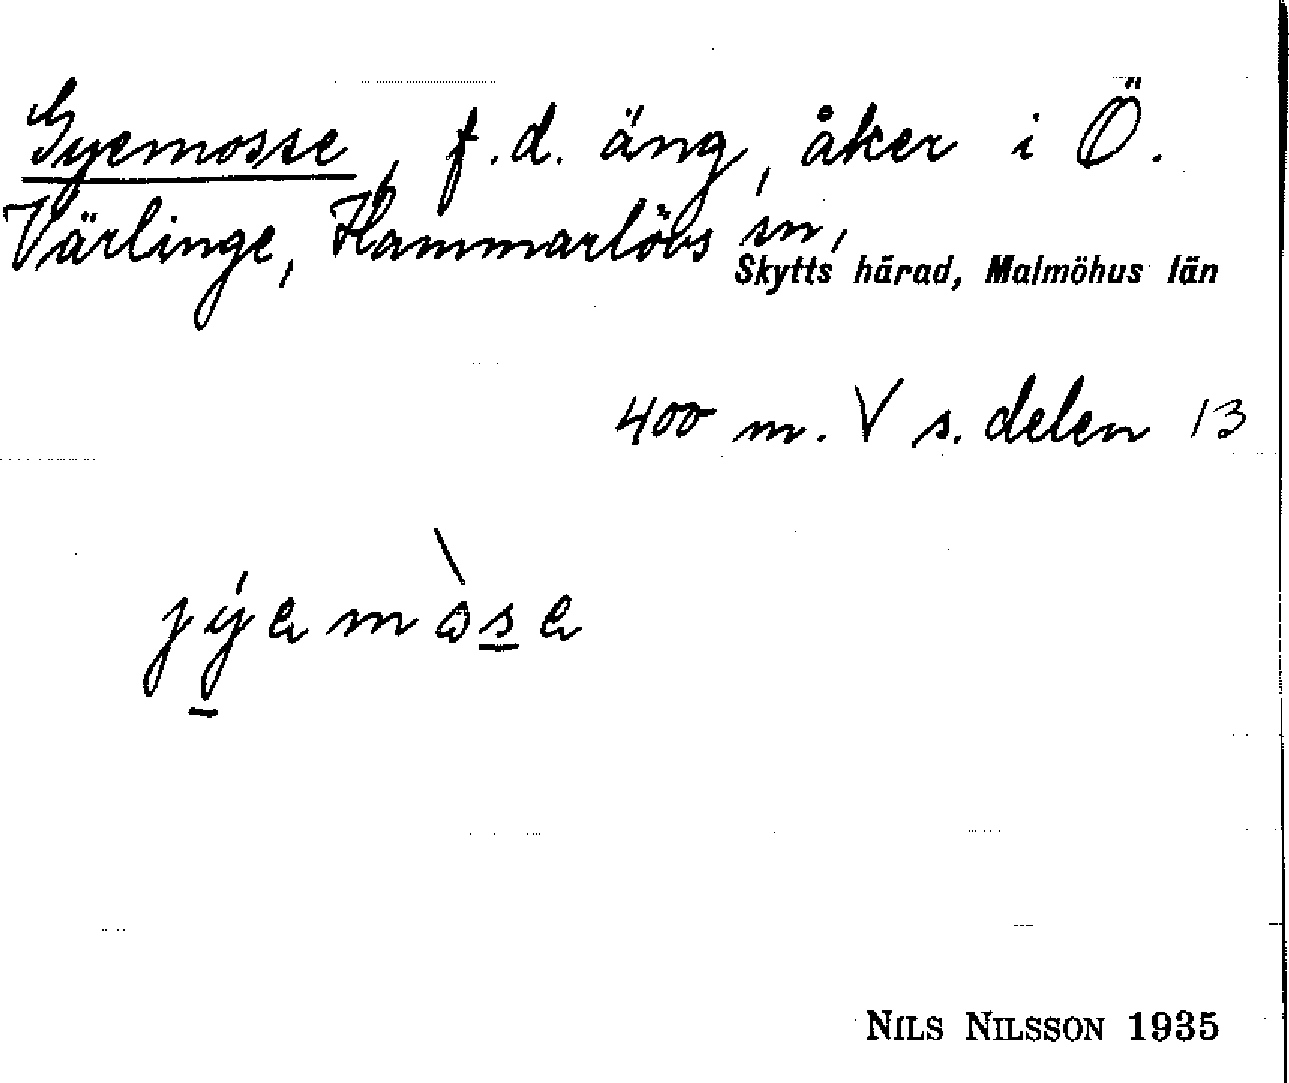 Gyemosse, f.d. äng, åker i Ö.
Värlinge, Hammarlövs sn,
Skytts härad, Malmöhus län
400 m. V s. delen 13
jýemòse
NILS NILSSON 1935